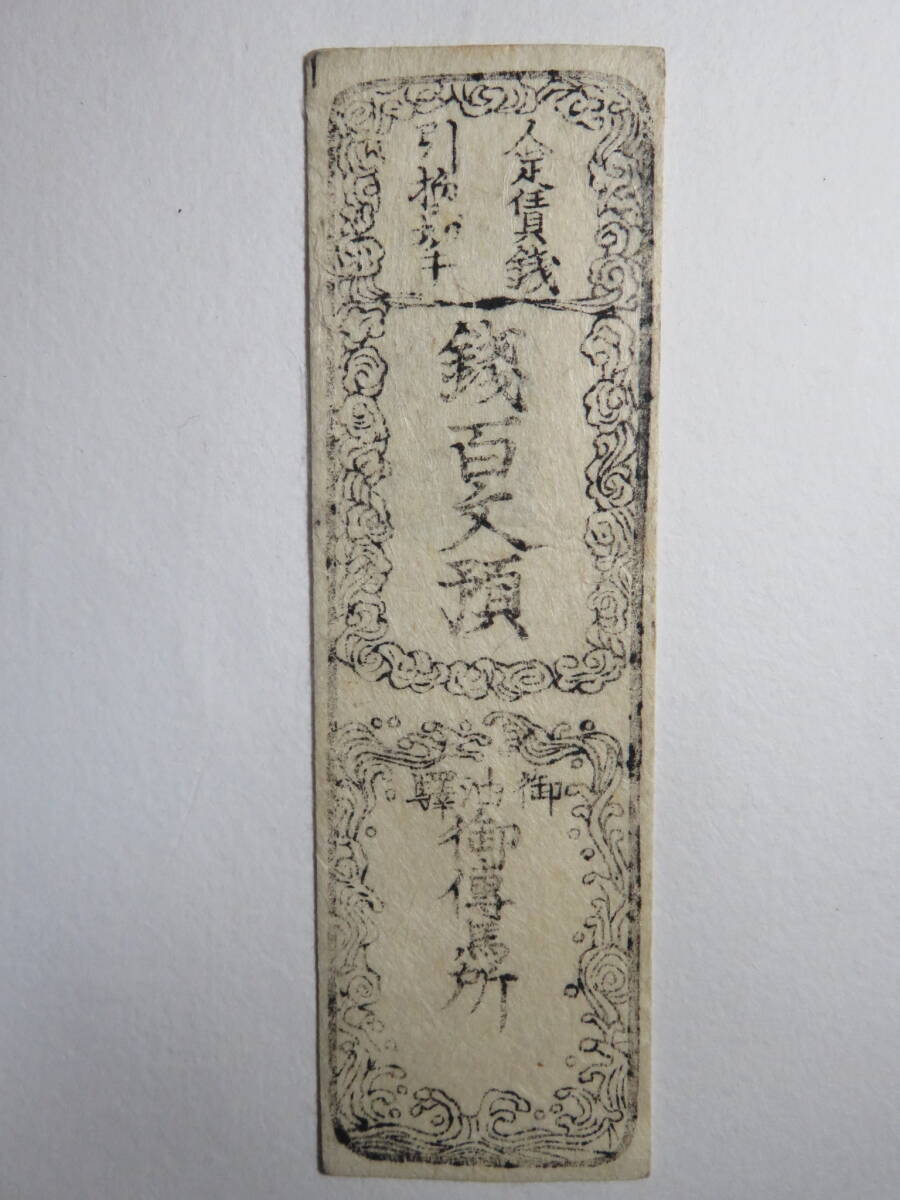 人足賃銭
引換切手
銭百文預
御油驛
御傳馬所